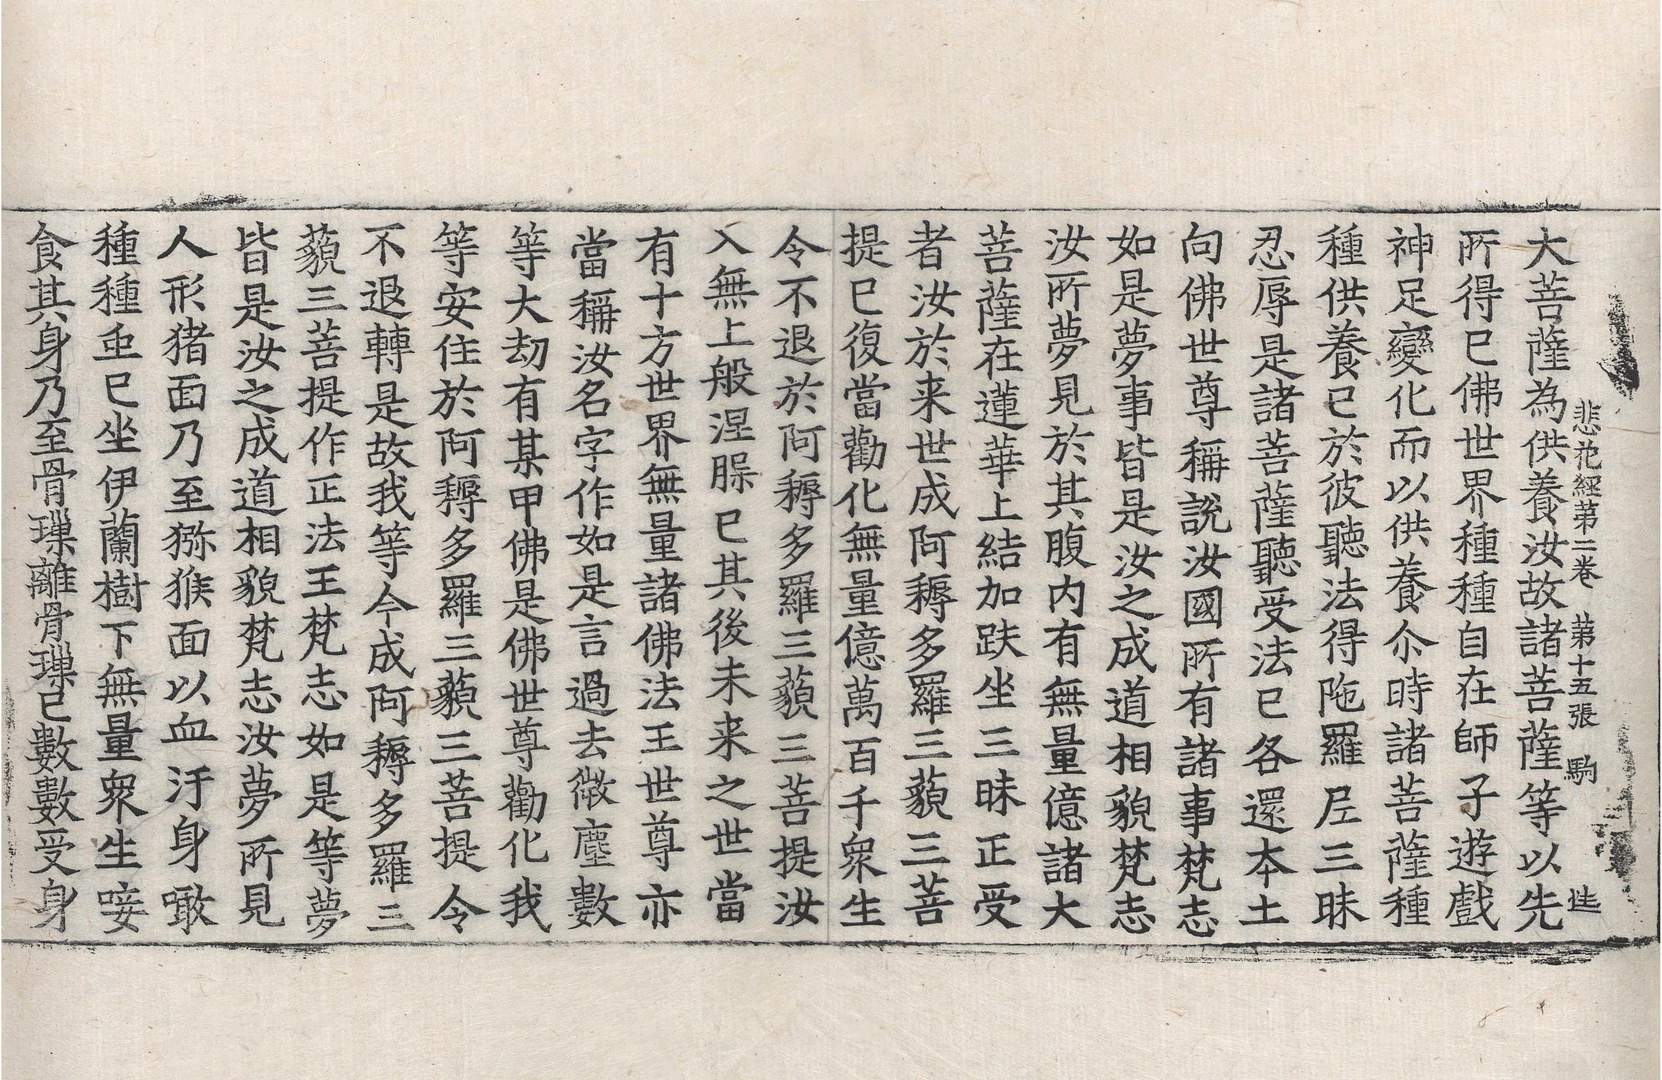 悲花経第二卷 第十五張 駒
大菩薩為供養汝故諸菩薩等以先
所得已佛世界種種自在師子遊戲
神足變化而以供養尒時諸菩薩種
種供養已於彼聽法得陁羅尼三昧
忍辱是諸菩薩聽受法已各還本土
向佛世尊稱說汝國所有諸事梵志
如是夢事皆是汝之成道相貌梵志
汝所夢見於其腹內有無量億諸大
菩薩在蓮華上結加趺坐三昧正受
者汝於来世成阿耨多羅三藐三菩
提已復當勸化無量億萬百千衆生
令不退於阿耨多羅三藐三菩提汝
入無上般涅槃已其後未来之世當
有十方世界無量諸佛法王世尊亦
當稱汝名字作如是言過去微塵數
等大劫有某甲佛是佛世尊勸化我
等安住於阿耨多羅三藐三菩提令
不退轉是故我等今成阿耨多羅三
藐三菩提作正法王梵志如是等夢
皆是汝之成道相貌梵志汝夢所見
人形猪面乃至獼猴面以血汙身噉
種種虫已坐伊蘭樹下無量衆生唼
食其身乃至骨璅離骨璅已數數受身